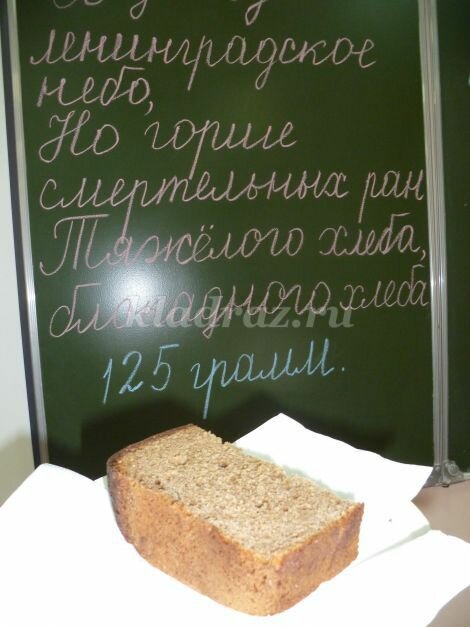 ленинградское
небо,
Но горше
смертельных ран
Тяжёлого хлеба,
блокадного хлеба
125 грамм.
kladraz.ru